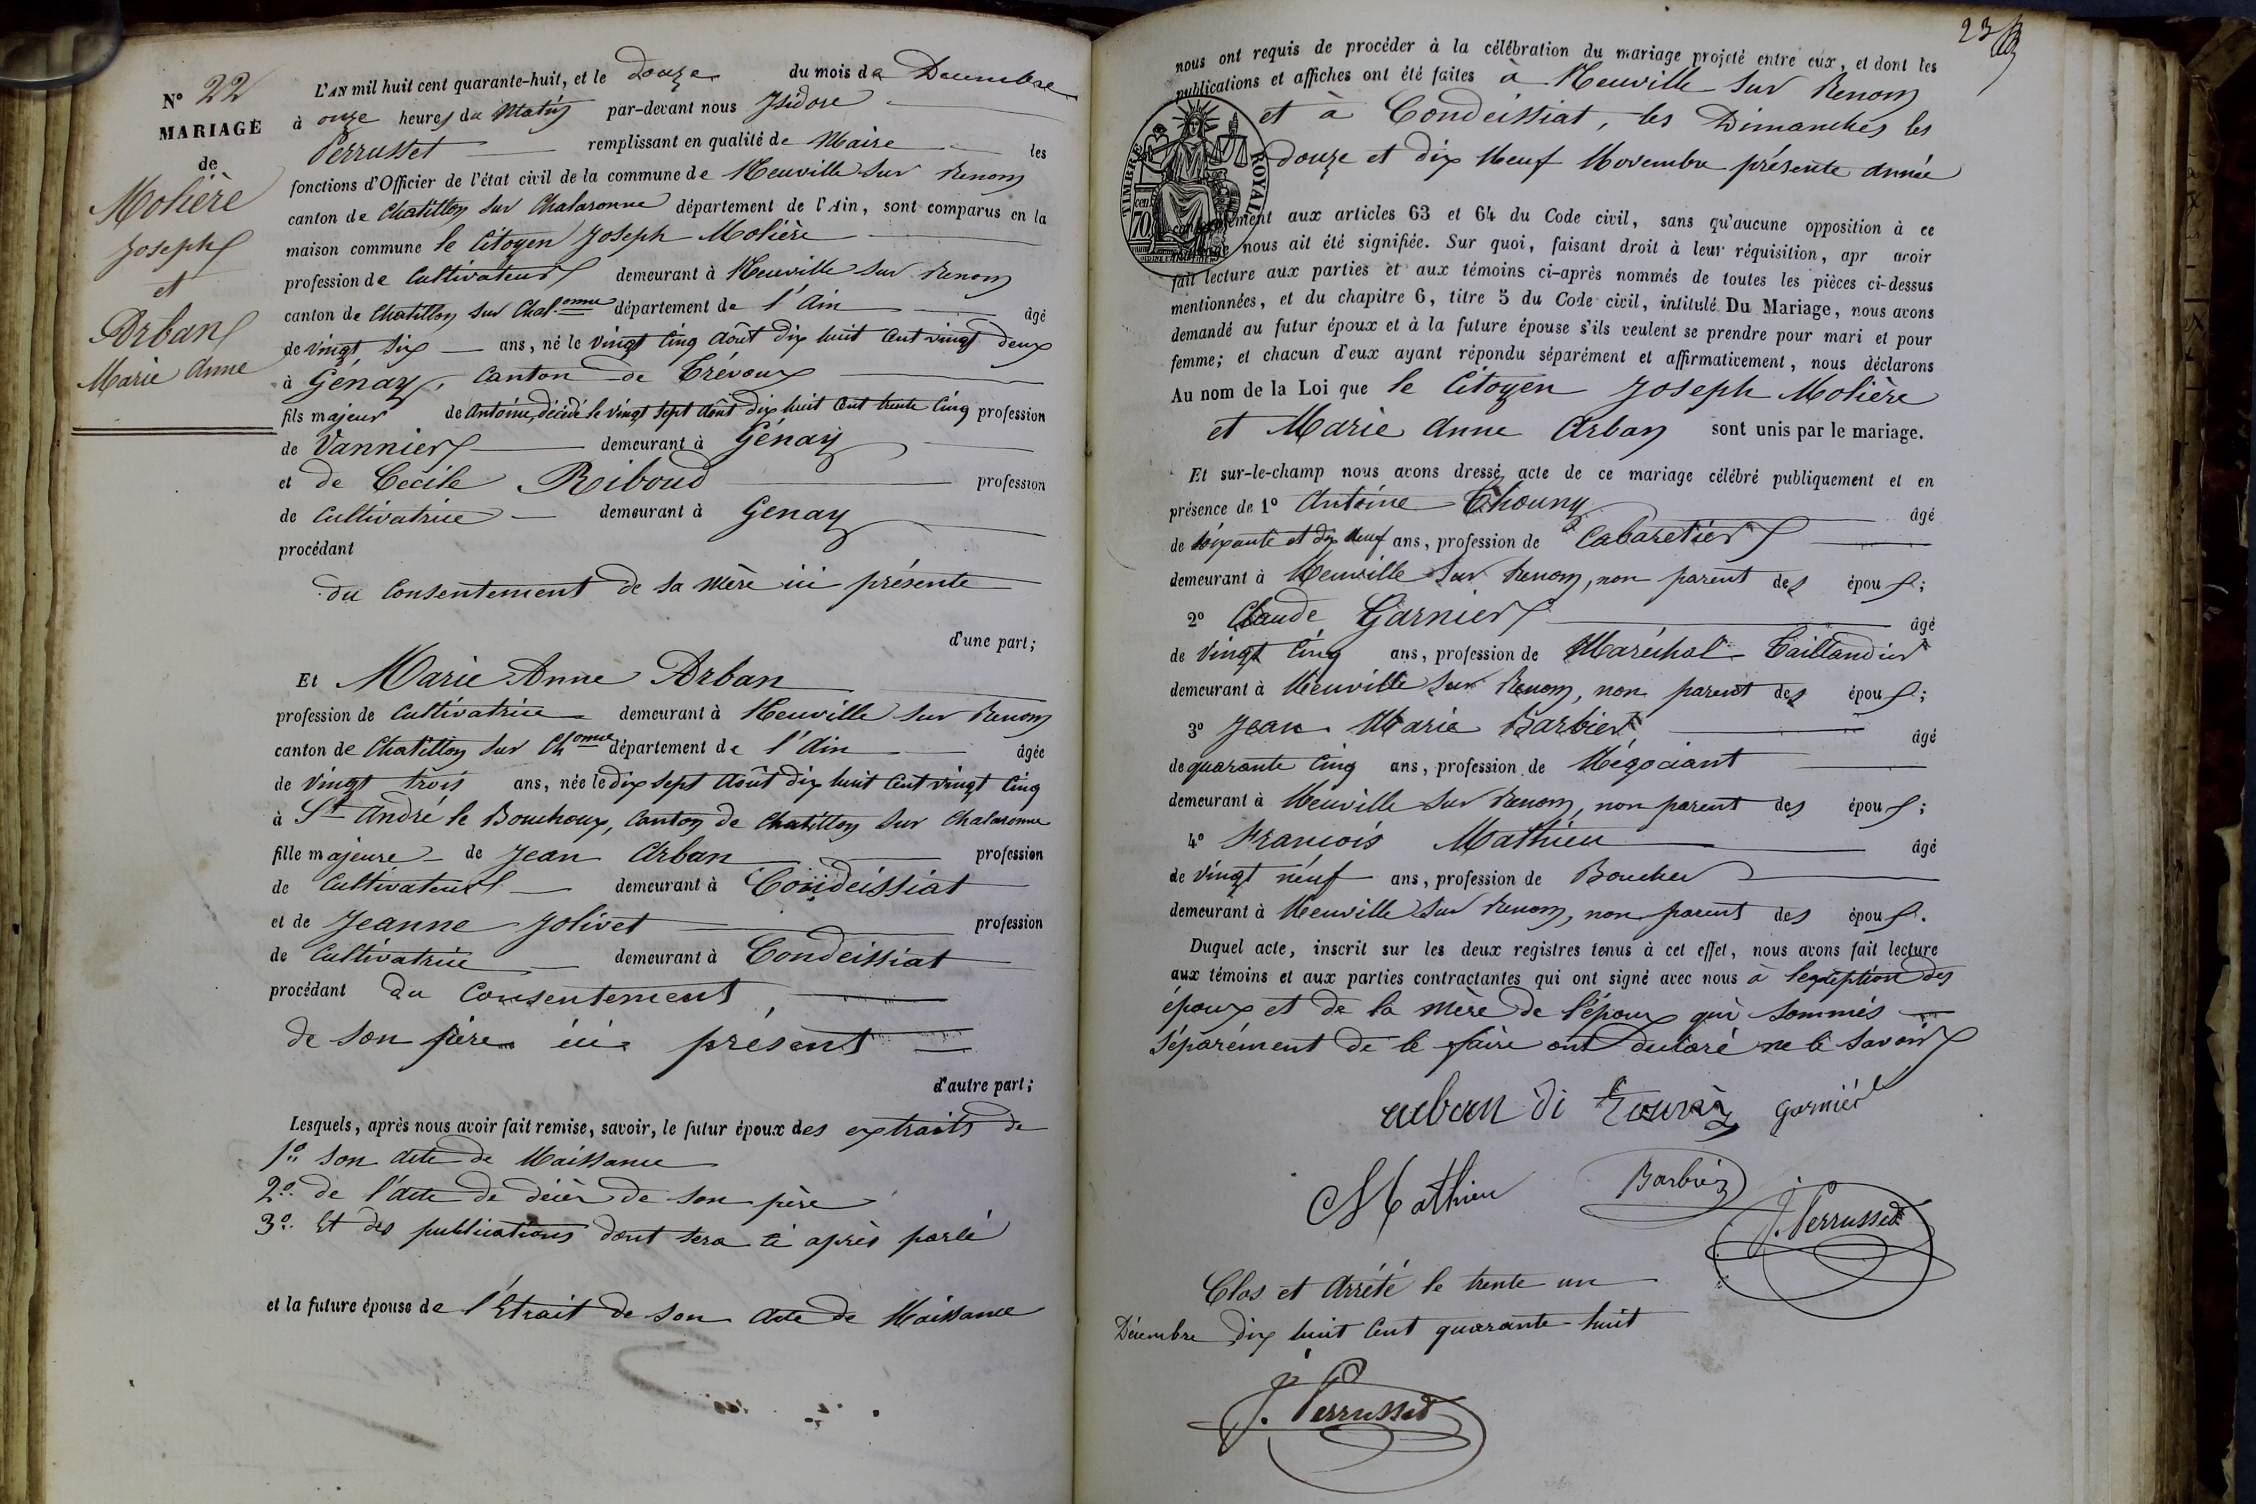 N° 22
MARIAGE
de
Molière
Joseph
et
Arban
Marie Anne
L'AN mil huit cent quarante-huit, et le douze du mois de Decembre
à onze heures du matin par-devant nous Isidore
Perrusset remplissant en qualité de Maire les
fonctions d'Officier de l'état civil de la commune de Neuville sur Renom
canton de Chatillon sur Chalaronne département de l'Ain, sont comparus en la
maison commune le Citoyen Joseph Molière
profession de Cultivateur demeurant à Neuville sur Renom
canton de Chatillon sur Chal.onne département de l'Ain âgé
de vingt six ans, né le vingt cinq Août dix huit cent vingt deux
à Génay, Canton de Trévoux
fils majeur de Antoine, décédé le vingt sept Août dix huit cent trente cinq profession
de Vannier demeurant à Génay
et de Cecile Riboud profession
de Cultivatrice demeurant à Génay
procédant
du Consentement de sa mère ici présente
d'une part;
Et Marie Anne Arban
profession de Cultivatrice demeurant à Neuville sur Renom
canton de Chatillon sur Ch.onne département de l'Ain âgée
de vingt trois ans, née le dix sept Août dix huit cent vingt cinq
à St André le Bouchoux, Canton de Chatillon sur Chalaronne
fille majeure de Jean Arban profession
de Cultivateur demeurant à Condeissiat
et de Jeanne Jolivet profession
de Cultivatrice demeurant à Condeissiat
procédant du Consentement
de son père ici présent
d'autre part;
Lesquels, après nous avoir fait remise, savoir, le futur époux des extraits de
1° son acte de Naissance
2° de l'acte de décès de son père
3° Et des publications dont sera ci après parlé
et la future épouse de l'Etrait de son acte de Naissance
23
nous ont requis de procéder à la célébration du mariage projeté entre eux, et dont les
publications et affiches ont été faites à Neuville sur Renom
et à Condeissiat, les Dimanches les
douze et dix neuf Novembre présente année
TIMBRE ROYAL
70 cen
conformément aux articles 63 et 64 du Code civil, sans qu'aucune opposition à ce
mariage nous ait été signifiée. Sur quoi, faisant droit à leur réquisition, apr avoir
fait lecture aux parties et aux témoins ci-après nommés de toutes les pièces ci-dessus
mentionnées, et du chapitre 6, titre 5 du Code civil, intitulé Du Mariage, nous avons
demandé au futur époux et à la future épouse s'ils veulent se prendre pour mari et pour
femme; et chacun d'eux ayant répondu séparément et affirmativement, nous déclarons
Au nom de la Loi que le Citoyen Joseph Molière
et Marie Anne Arban sont unis par le mariage.
Et sur-le-champ nous avons dressé acte de ce mariage célébré publiquement et en
présence de 1° Antoine Thouny âgé
de soixante et dix neuf ans, profession de Cabaretier
demeurant à Neuville sur Renom, non parent des époux;
2° Claude Garnier âgé
de vingt cinq ans, profession de Maréchal Taillandier
demeurant à Neuville sur Renom, non parent des époux;
3° Jean Marie Barbier âgé
de quarante cinq ans, profession de Négociant
demeurant à Neuville sur Renom, non parent des époux;
4° François Mathieu âgé
de vingt neuf ans, profession de Boucher
demeurant à Neuville sur Renom, non parent des époux.
Duquel acte, inscrit sur les deux registres tenus à cet effet, nous avons fait lecture
aux témoins et aux parties contractantes qui ont signé avec nous à l'exception des
époux et de la mère de l'époux qui sommés
séparément de le faire ont déclaré ne le savoir
arban garnier
Mathieu Barbier J. Perrusset
Clos et Arrété le trente un
Décembre dix huit cent quarante huit
J. Perrusset